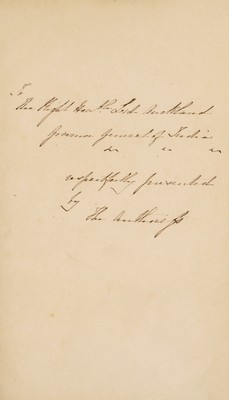 To
The Right Hon.ble Lord Auckland
governor general of India
respectfully presented
by
The Authors